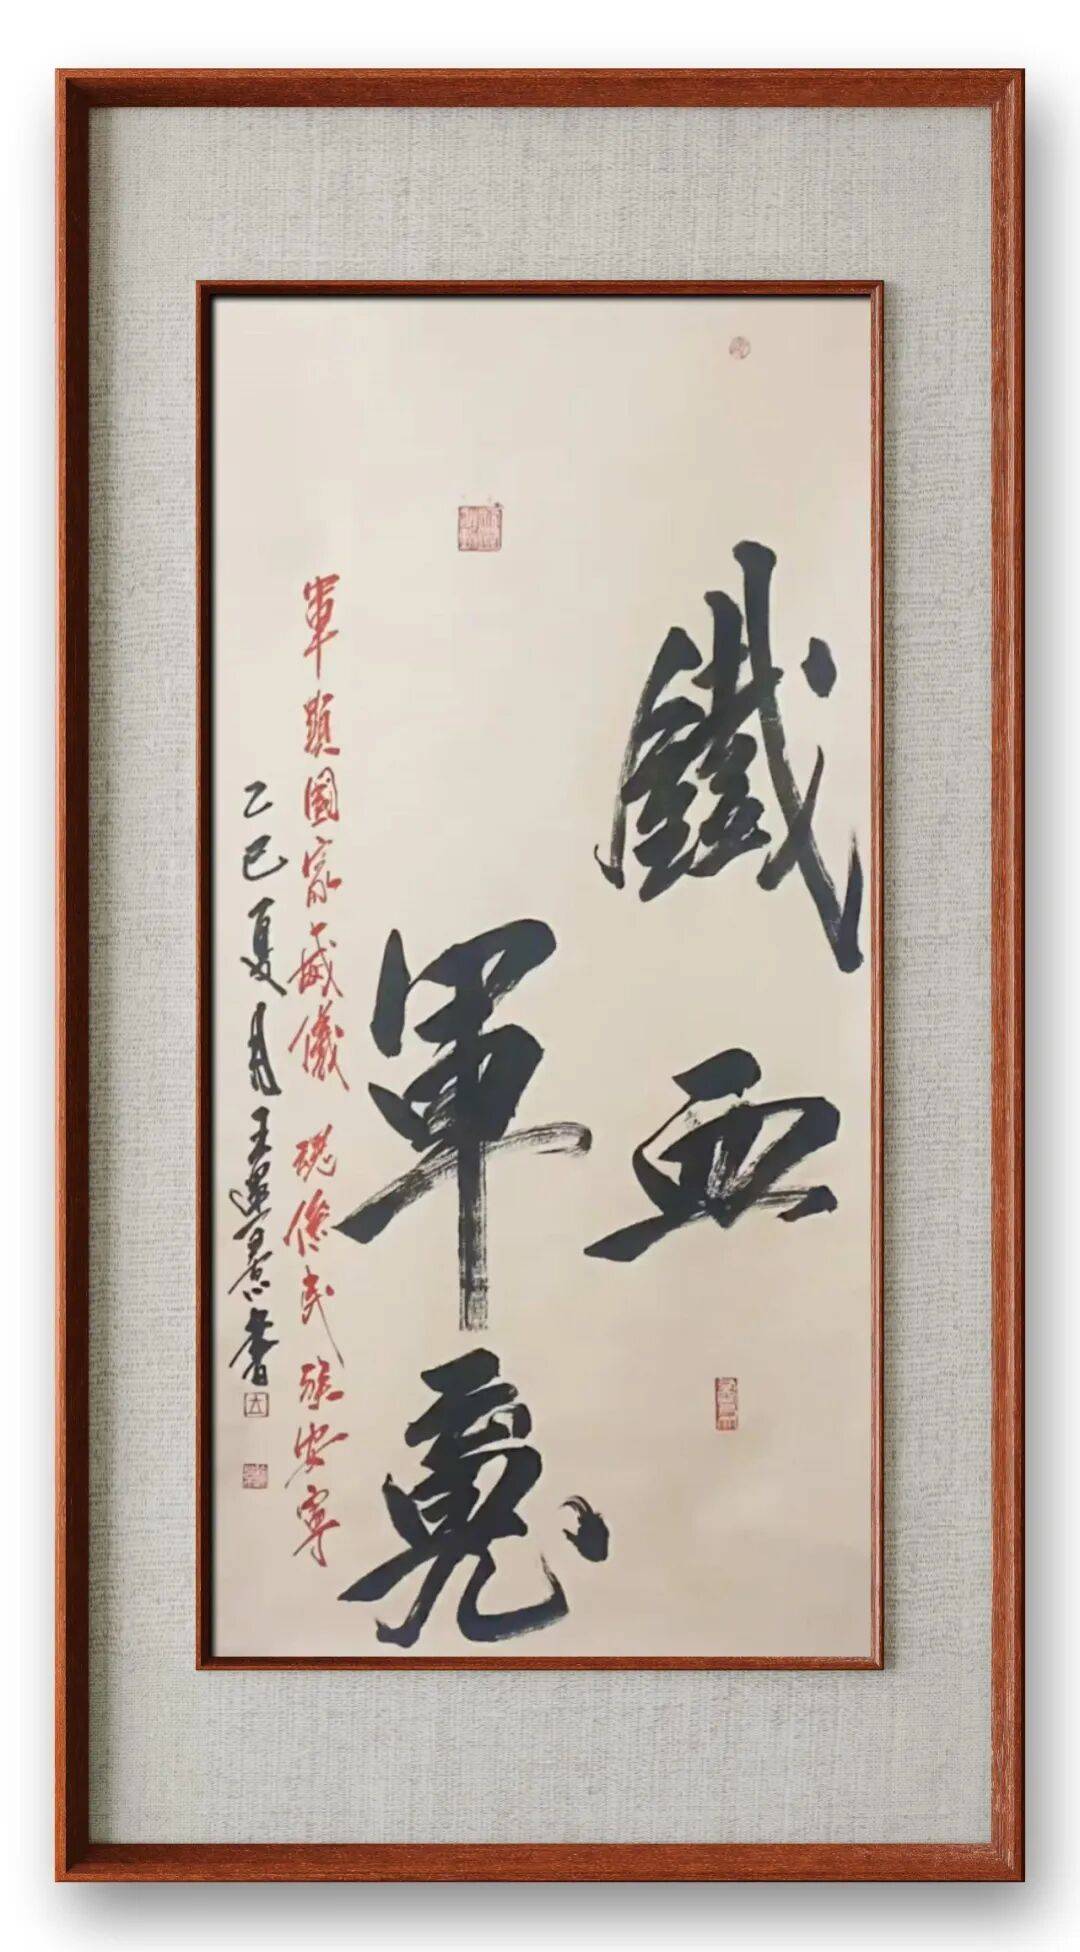 鐵血
軍魂
軍顯國家威儀 魂係民族安寧
乙巳夏月王書